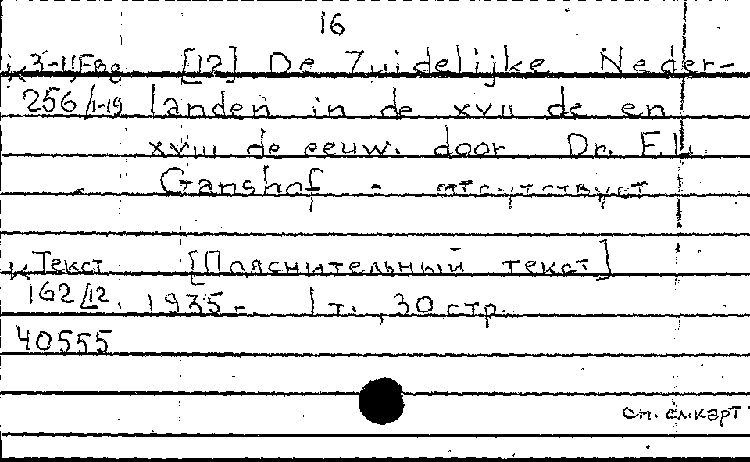 16
К 3-11,Fbg [12] De Zuidelijke Neder-
256/1-19 landen in de XVII de en
XVIII de eeuw. door Dr. F.L.
Ganshof - отсутствует
К Текст [Пояснительный текст]
162/12. 1935-. 1 т., 30 стр.
40555
см. сл. карт